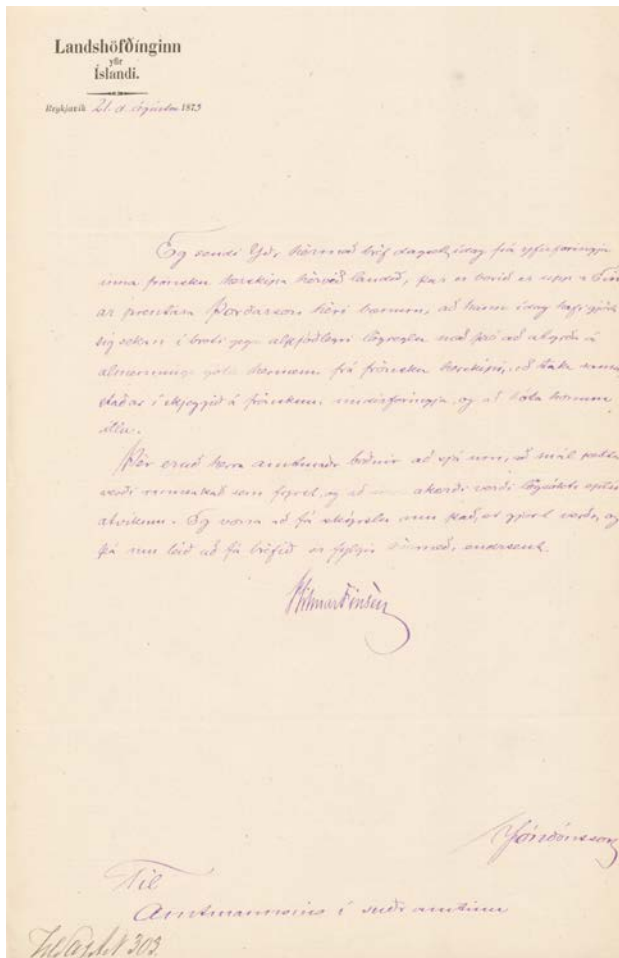 Landshöfðínginn
yfir
Íslandi.
Reykjavík 21. d. ágústm. 1873
Eg sendi Yðr hérmeð bréf dagsett ídag frá yfirforíngja
inna frönsku herskipa hérvið landið, þar er borið er upp á Ein
ar prentara Þórðarson héri bænum, að hann ídag hafi gjört
sig sekan í broti gegn alþjóðlegri lögreglu með því að ráðast á
almennings götu hermenn frá frönsku herskipi, að taka
staðar í skeggið á frönskum undirforingja, og að hóta honum
öllu.
Þér eruð herra amtmaðr beðnir að sjá um, að mál þetta
verði rannsakað sem fyrst, og að verði lögsótt eptir
atvikum. Eg vona að fá skýrslu um það, er gjört verðr, og
þá um leið að fá bréfið er fylgir hérmeð, endrsent.
Hilmar Finsen
Jón Jónsson
Til
Amtmannsins í suðramtinu
N 303.